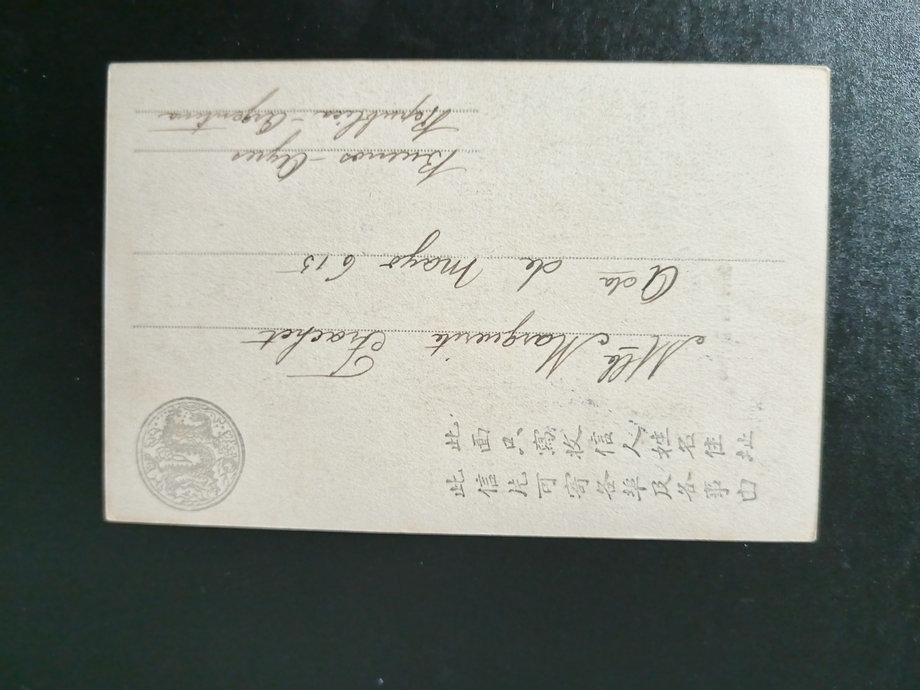 此面只寫收信人姓名住址
此信片可寄各埠及各事由
Mlle Marguerite Frachet
Ada de Mayo 613
Buenos-Ayres
Republica-Argentina